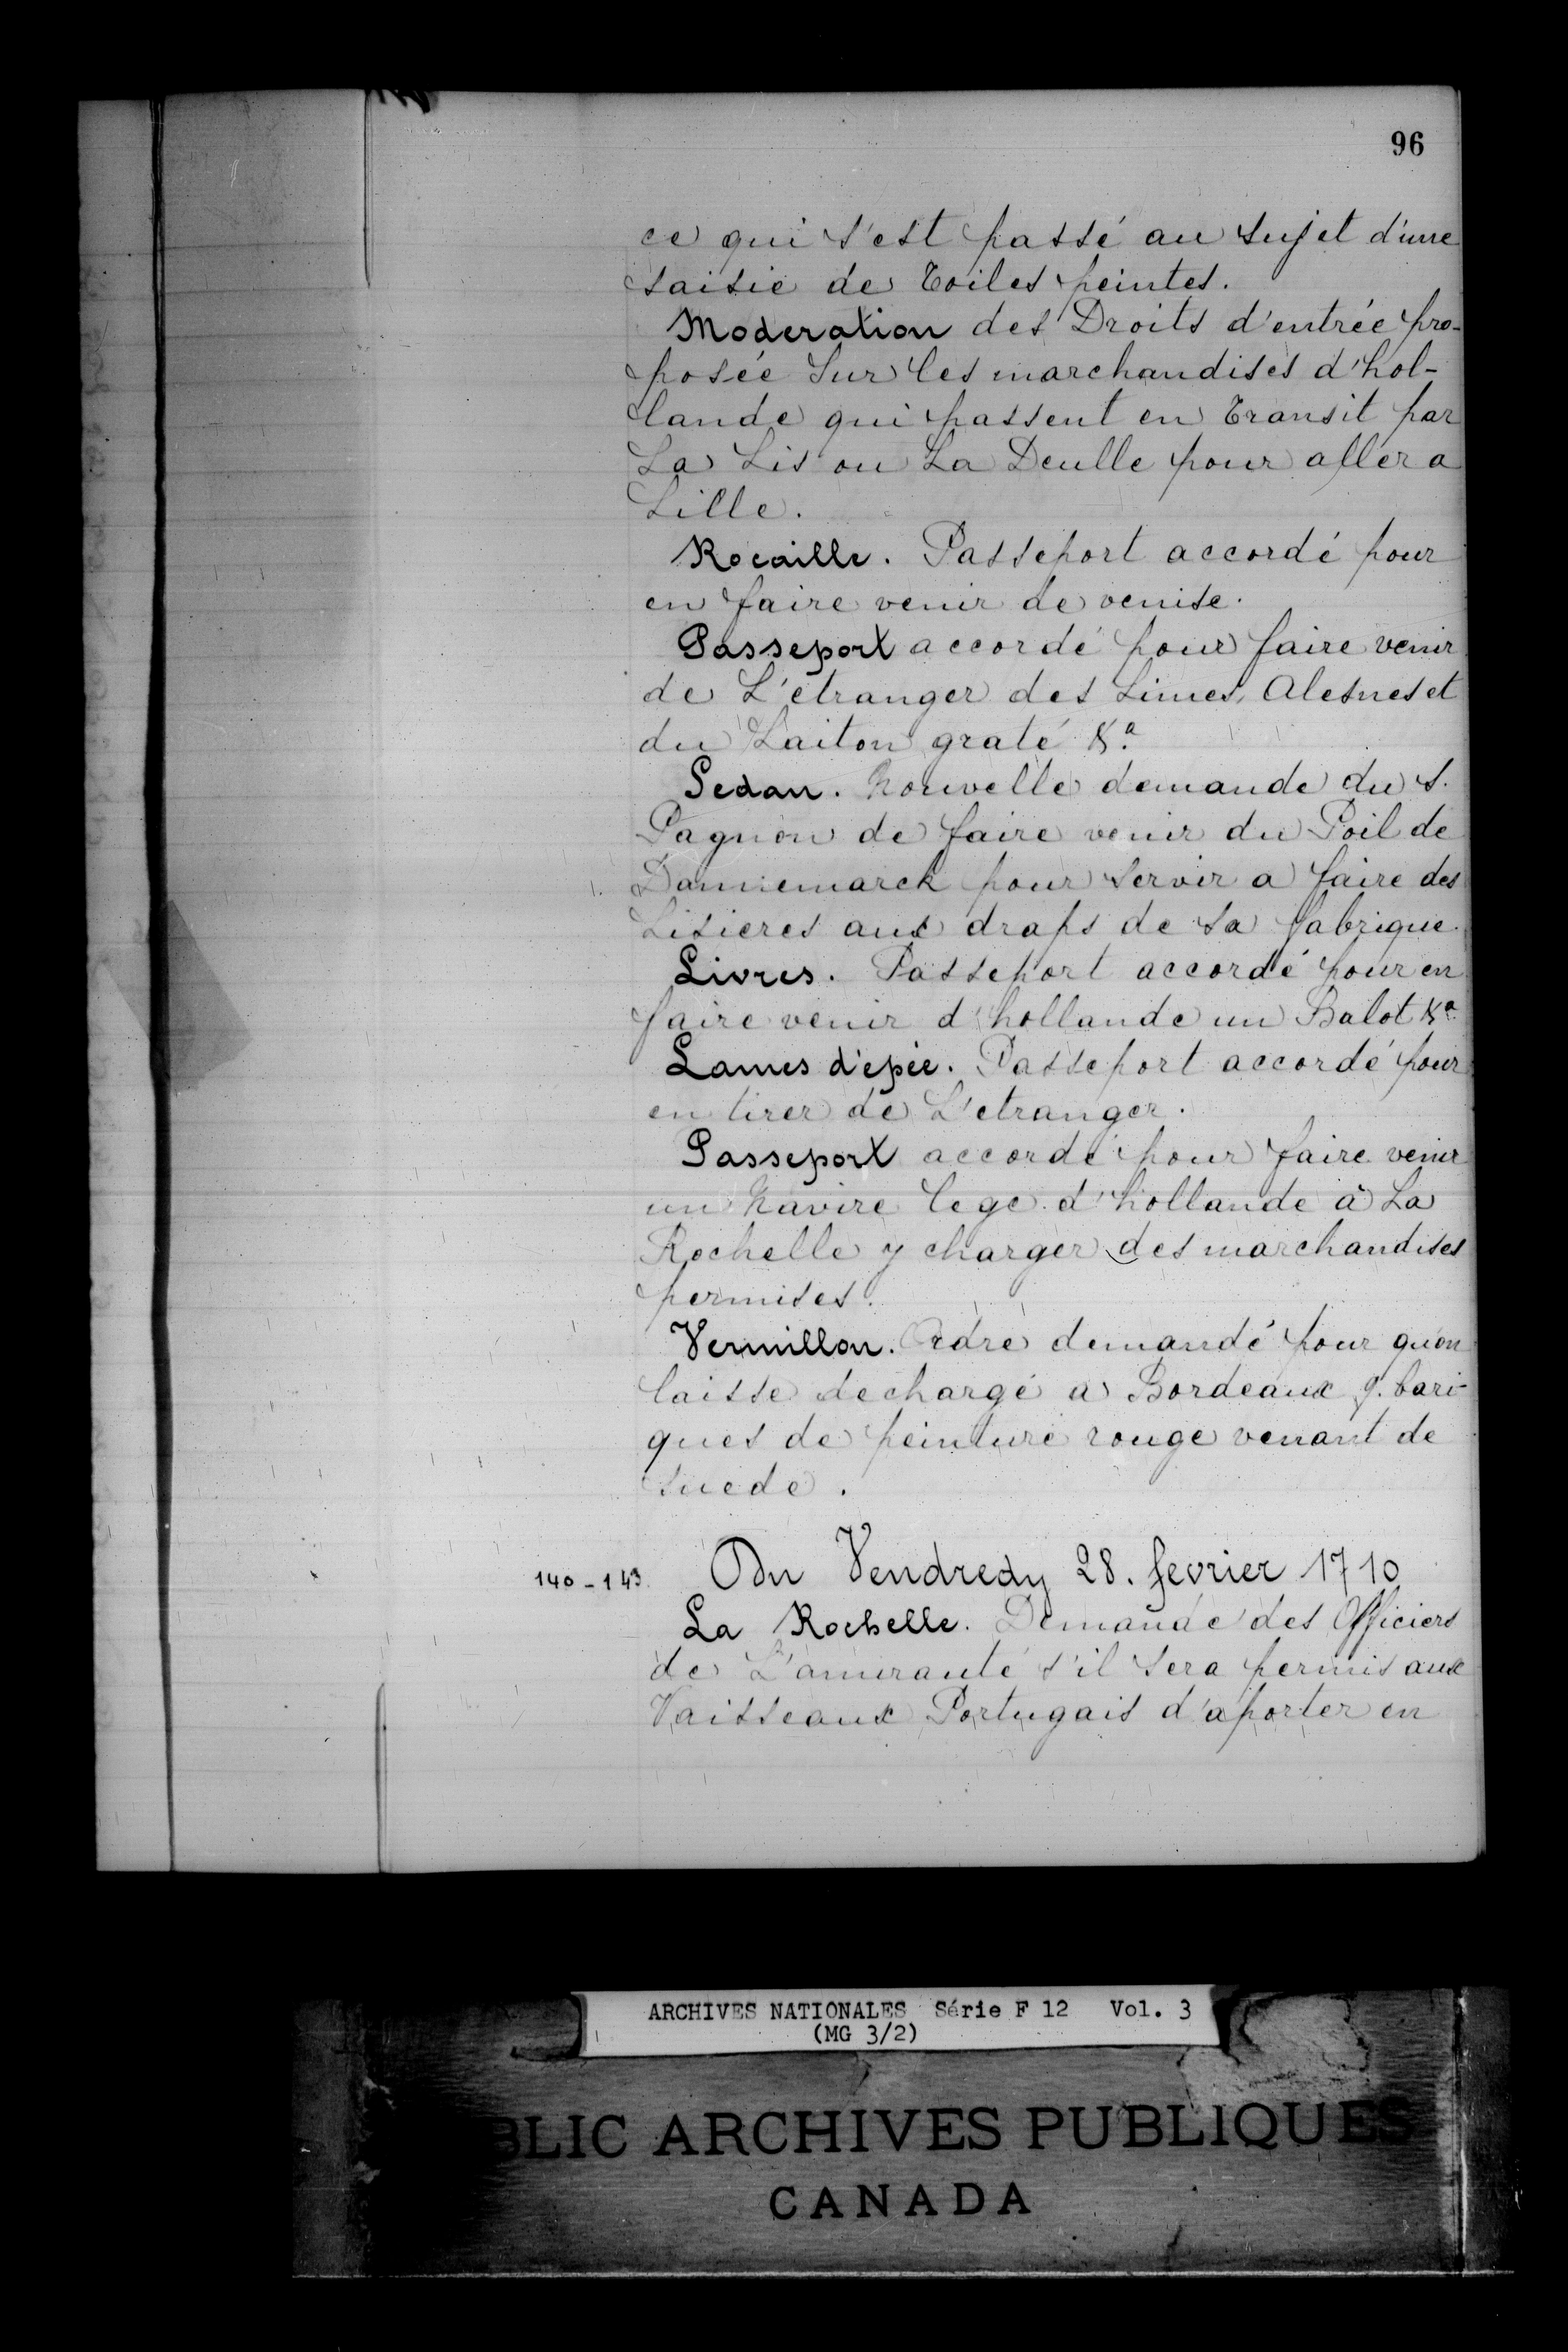 96
ce qui s'est passé au sujet d'une
saisie de Toiles peintes.
Moderation des Droits d'entrée pro-
posée sur les marchandises d'hol-
lande qui passent en Transit par
La Lis ou La Deulle pour aller a
Lille.
Rocaille. Passeport accordé pour
en faire venir de venise.
Passeport accordé pour faire venir
de L'étranger des Limes, Alesnes et
du Laiton graté &a
Sedan. Nouvelle demande du S.
Pagnon de faire venir du Poil de
Dannemarck pour servir a faire des
Lisieres aux draps de sa fabrique.
Livres. Passeport accordé pour en
faire venir d'hollande un Balot &a
Lames d'epée. Passeport accordé pour
en tirer de L'etranger.
Passeport accordé pour faire venir
un Navire lege d'hollande à La
Rochelle y charger des marchandises
permises.
Vermillon. Ordre demandé pour qu'on
laisse decharge a Bordeaux 9. bari-
ques de peinture rouge venant de
suede.
140-143. Du Vendredy 28. fevrier 1710
La Rochelle. Demande des Officiers
de L'amirauté s'il sera permis aux
Vaisseaux Portugais d'aporter en
ARCHIVES NATIONALES Série F 12 Vol. 3
(MG 3/2)
BLIC ARCHIVES PUBLIQUES
CANADA